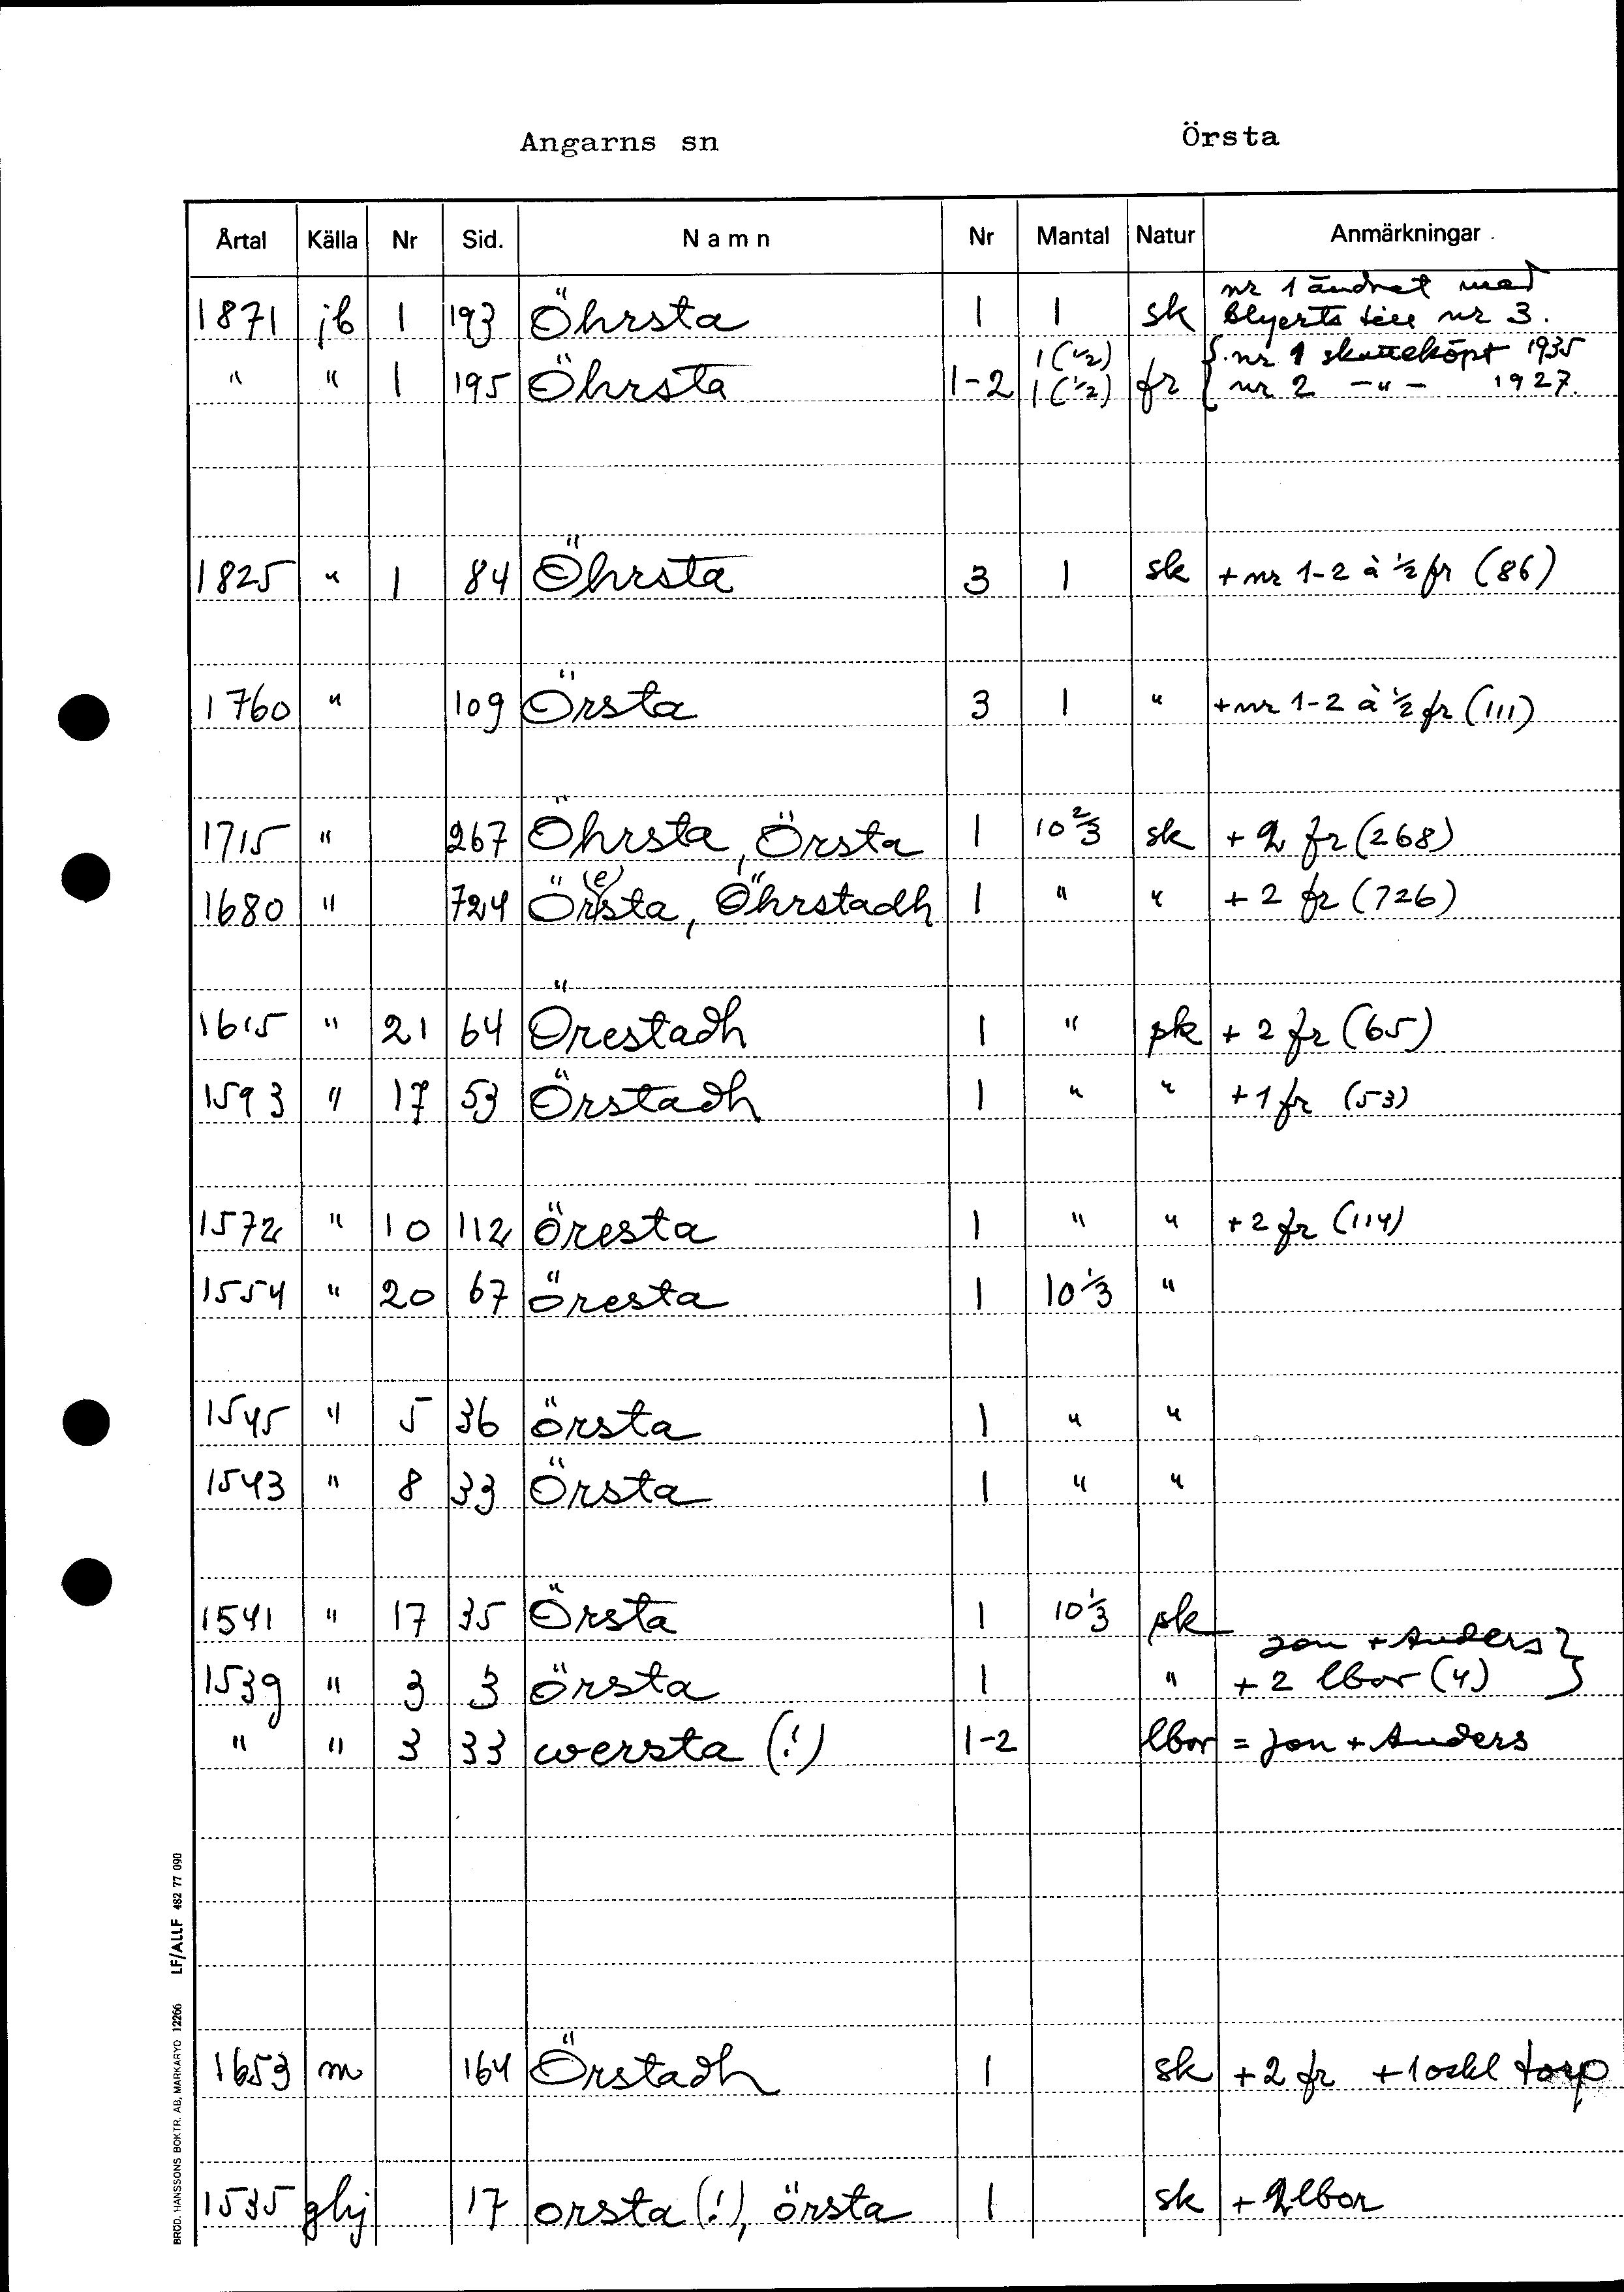 Angarns sn Örsta
Årtal Källa Nr Sid. Namn Nr Mantal Natur Anmärkningar
1871 jb 1 193 Öhrsta 1 1 sk nr 1 ändrat med
blyerts till nr 3.
" " 1 195 Öhrsta 1-2 1 (½) fr { nr 1 skatteköpt 1935
1 (½) nr 2 -"- 1927.
1825 " 1 84 Öhrsta 3 1 sk + nr 1-2 à ½ fr (86)
1760 " 109 Örsta 3 1 " + nr 1-2 à ½ fr (111)
1715 " 267 Öhrsta, Örsta 1 10 2/3 sk + 2 fr (268)
1680 " 724 Ör(e)sta, Öhrstadh 1 " " + 2 fr (726)
1615 " 21 64 Örestadh 1 " pk + 2 fr (65)
1593 " 17 53 Örstadh 1 " " + 1 fr (53)
1572 " 10 112 öresta 1 " " + 2 fr (114)
1554 " 20 67 öresta 1 10 1/3 "
1545 " 5 36 örsta 1 " "
1543 " 8 33 Örsta 1 " "
1541 " 17 35 Örsta 1 10 1/3 sk
Jon + Anders }
1539 " 3 3 örsta 1 " + 2 lbor (4)
" " 3 33 wersta (!) 1-2 lbor = Jon + Anders
1653 m 164 Örstadh 1 sk + 2 fr + 1 ockl torp
1535 ghj 17 orsta (!), örsta 1 sk + 2 lbor
BRÖD. HANSSONS BOKTR. AB, MARKARYD 12266 LF/ALLF 482 77 090